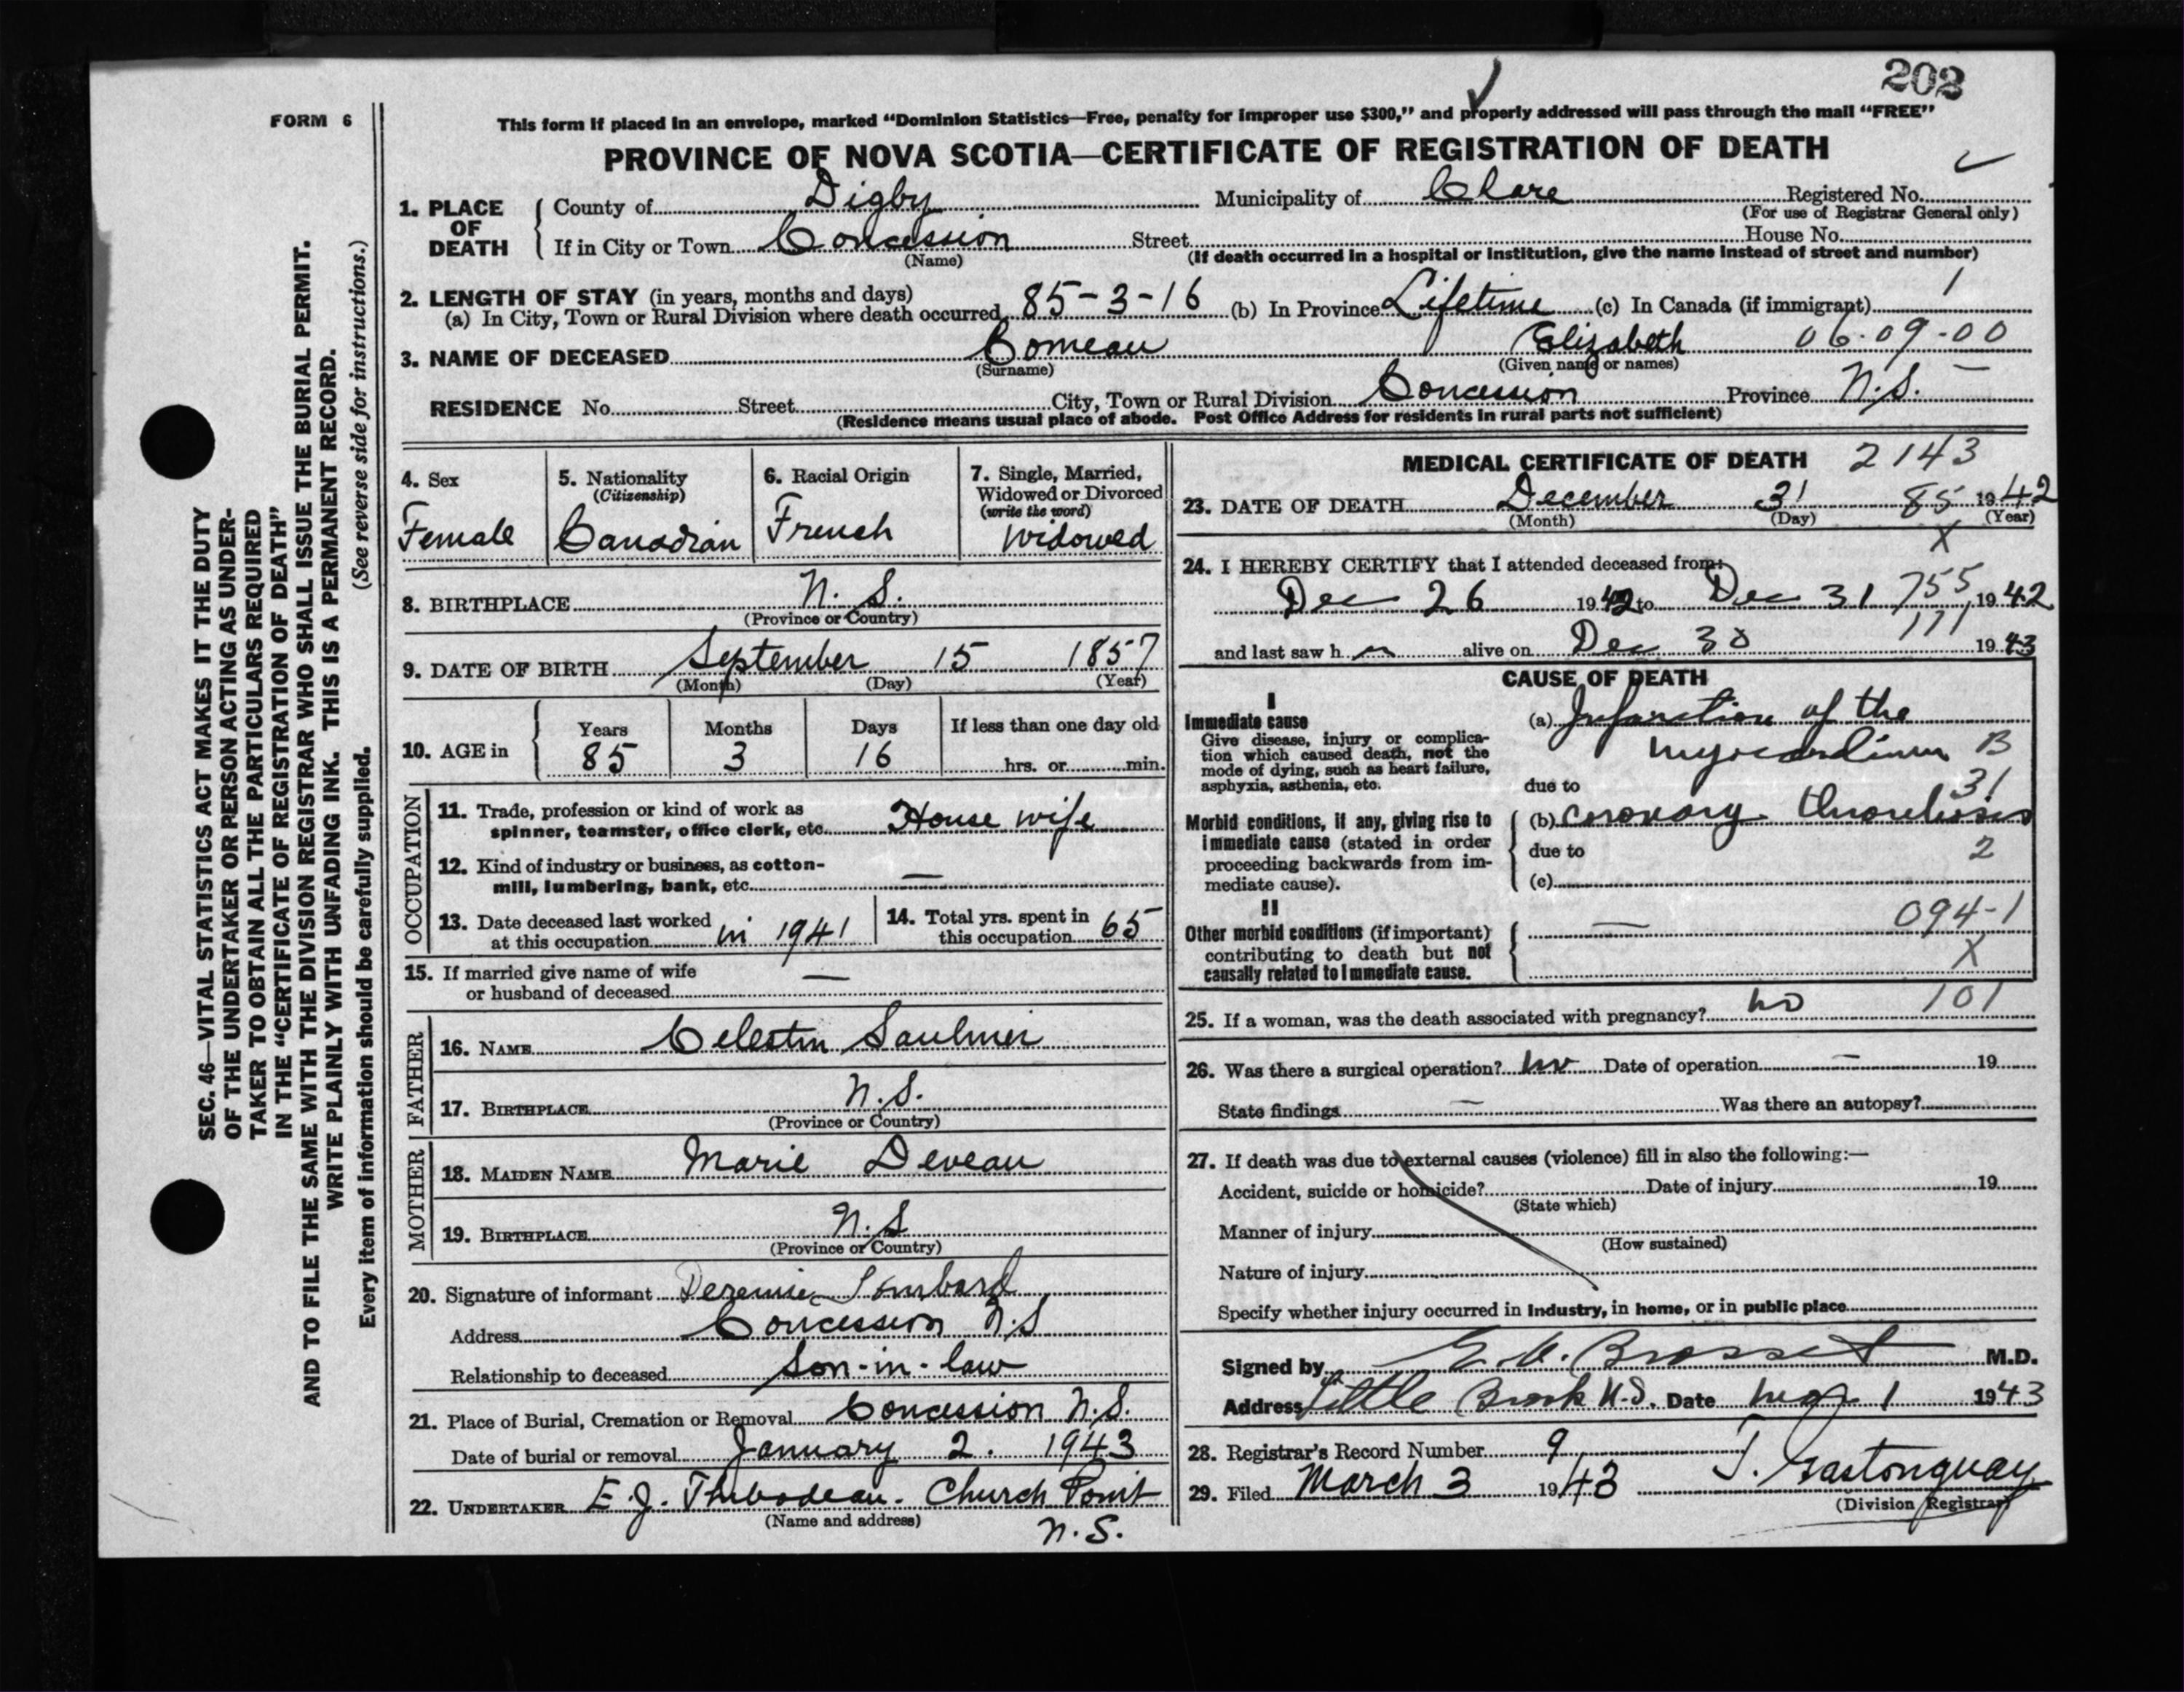 202
FORM 6
This form if placed in an envelope, marked “Dominion Statistics—Free, penalty for improper use $300,” and properly addressed will pass through the mail “FREE”
PROVINCE OF NOVA SCOTIA—CERTIFICATE OF REGISTRATION OF DEATH
1. PLACE OF DEATH
County of Digby Municipality of Clare Registered No.
(For use of Registrar General only)
If in City or Town Concession Street House No.
(Name) (If death occurred in a hospital or institution, give the name instead of street and number)
2. LENGTH OF STAY (in years, months and days)
(a) In City, Town or Rural Division where death occurred 85-3-16 (b) In Province Lifetime (c) In Canada (if immigrant) 1
3. NAME OF DECEASED Comeau Elizabeth 06-09-00
(Surname) (Given name or names)
RESIDENCE No. Street City, Town or Rural Division Concession Province N.S.
(Residence means usual place of abode. Post Office Address for residents in rural parts not sufficient)
4. Sex
Female
5. Nationality
(Citizenship)
Canadian
6. Racial Origin
French
7. Single, Married,
Widowed or Divorced
(write the word)
Widowed
8. BIRTHPLACE N. S.
(Province or Country)
9. DATE OF BIRTH September 15 1857
(Month) (Day) (Year)
10. AGE in
Years Months Days If less than one day old
85 3 16 hrs. or min.
OCCUPATION
11. Trade, profession or kind of work as
spinner, teamster, office clerk, etc. House wife
12. Kind of industry or business, as cotton-
mill, lumbering, bank, etc. —
13. Date deceased last worked
at this occupation in 1941
14. Total yrs. spent in
this occupation 65
15. If married give name of wife
or husband of deceased —
FATHER
16. NAME Celestin Saulnier
17. BIRTHPLACE N.S.
(Province or Country)
MOTHER
18. MAIDEN NAME Marie Deveau
19. BIRTHPLACE N.S
(Province or Country)
20. Signature of informant Lombard
Address Concession N.S
Relationship to deceased Son-in-law
21. Place of Burial, Cremation or Removal Concession N.S.
Date of burial or removal January 2. 1943
22. UNDERTAKER E. J. Thibodeau. Church Point
(Name and address) N.S.
MEDICAL CERTIFICATE OF DEATH 2143
23. DATE OF DEATH December 31 85 1942
(Month) (Day) (Year)
X
24. I HEREBY CERTIFY that I attended deceased from:
Dec 26 1942 to Dec 31 755 1942
171
and last saw h er alive on Dec 30 1943
CAUSE OF DEATH
I
Immediate cause
Give disease, injury or complica-
tion which caused death, not the
mode of dying, such as heart failure,
asphyxia, asthenia, etc.
(a) Infarction of the
myocardium B
due to 31
Morbid conditions, if any, giving rise to
immediate cause (stated in order
proceeding backwards from im-
mediate cause).
(b) coronary thrombosis
due to 2
(c)
II
Other morbid conditions (if important)
contributing to death but not
causally related to immediate cause.
— 094-1
X
25. If a woman, was the death associated with pregnancy? no 101
26. Was there a surgical operation? no Date of operation — 19
State findings — Was there an autopsy?
27. If death was due to external causes (violence) fill in also the following:—
Accident, suicide or homicide? Date of injury 19
(State which)
Manner of injury
(How sustained)
Nature of injury
Specify whether injury occurred in industry, in home, or in public place
Signed by M.D.
Address Little Brook N.S. Date Mar 1 1943
28. Registrar's Record Number 9
29. Filed March 3 1943 J. Gastonguay
(Division Registrar)
SEC. 46—VITAL STATISTICS ACT MAKES IT THE DUTY
OF THE UNDERTAKER OR PERSON ACTING AS UNDER-
TAKER TO OBTAIN ALL THE PARTICULARS REQUIRED
IN THE “CERTIFICATE OF REGISTRATION OF DEATH”
AND TO FILE THE SAME WITH THE DIVISION REGISTRAR WHO SHALL ISSUE THE BURIAL PERMIT.
WRITE PLAINLY WITH UNFADING INK. THIS IS A PERMANENT RECORD.
Every item of information should be carefully supplied. (See reverse side for instructions.)